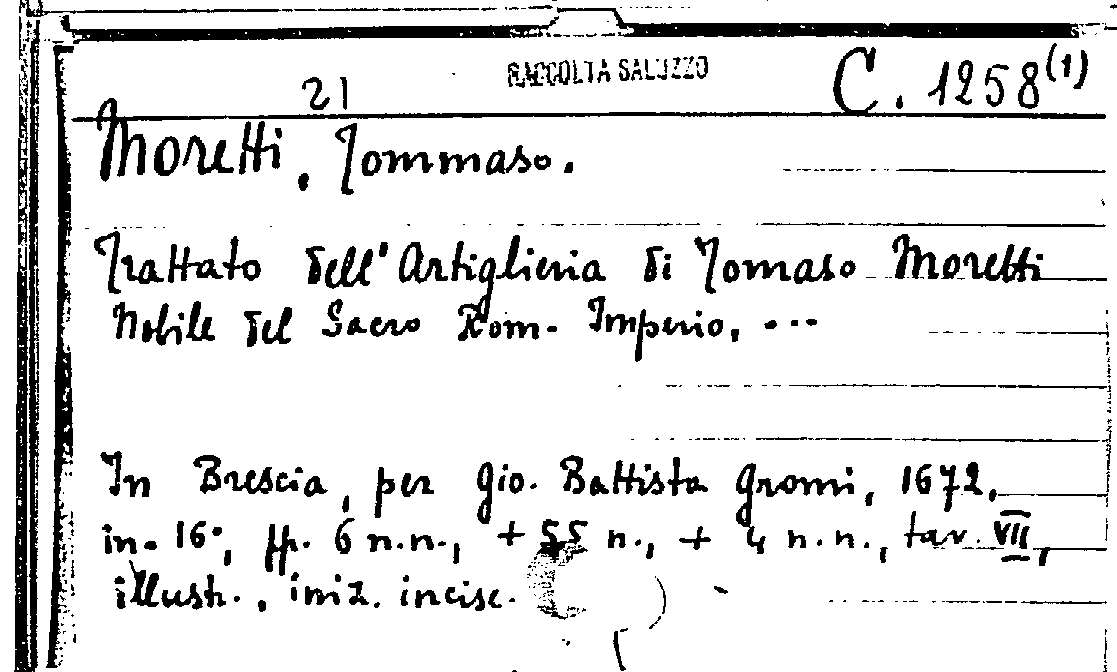 RACCOLTA SALUZZO
21 C. 1258(1)
Moretti, Tommaso.
Trattato dell'Artiglieria di Tomaso Moretti
Nobile del Sacro Rom. Imperio, ...
In Brescia, per Gio. Battista Gromi, 1672,
in-16°, pp. 6 n.n., + 55 n., + 4 n.n., tav. VII,
illustr., iniz. incise.